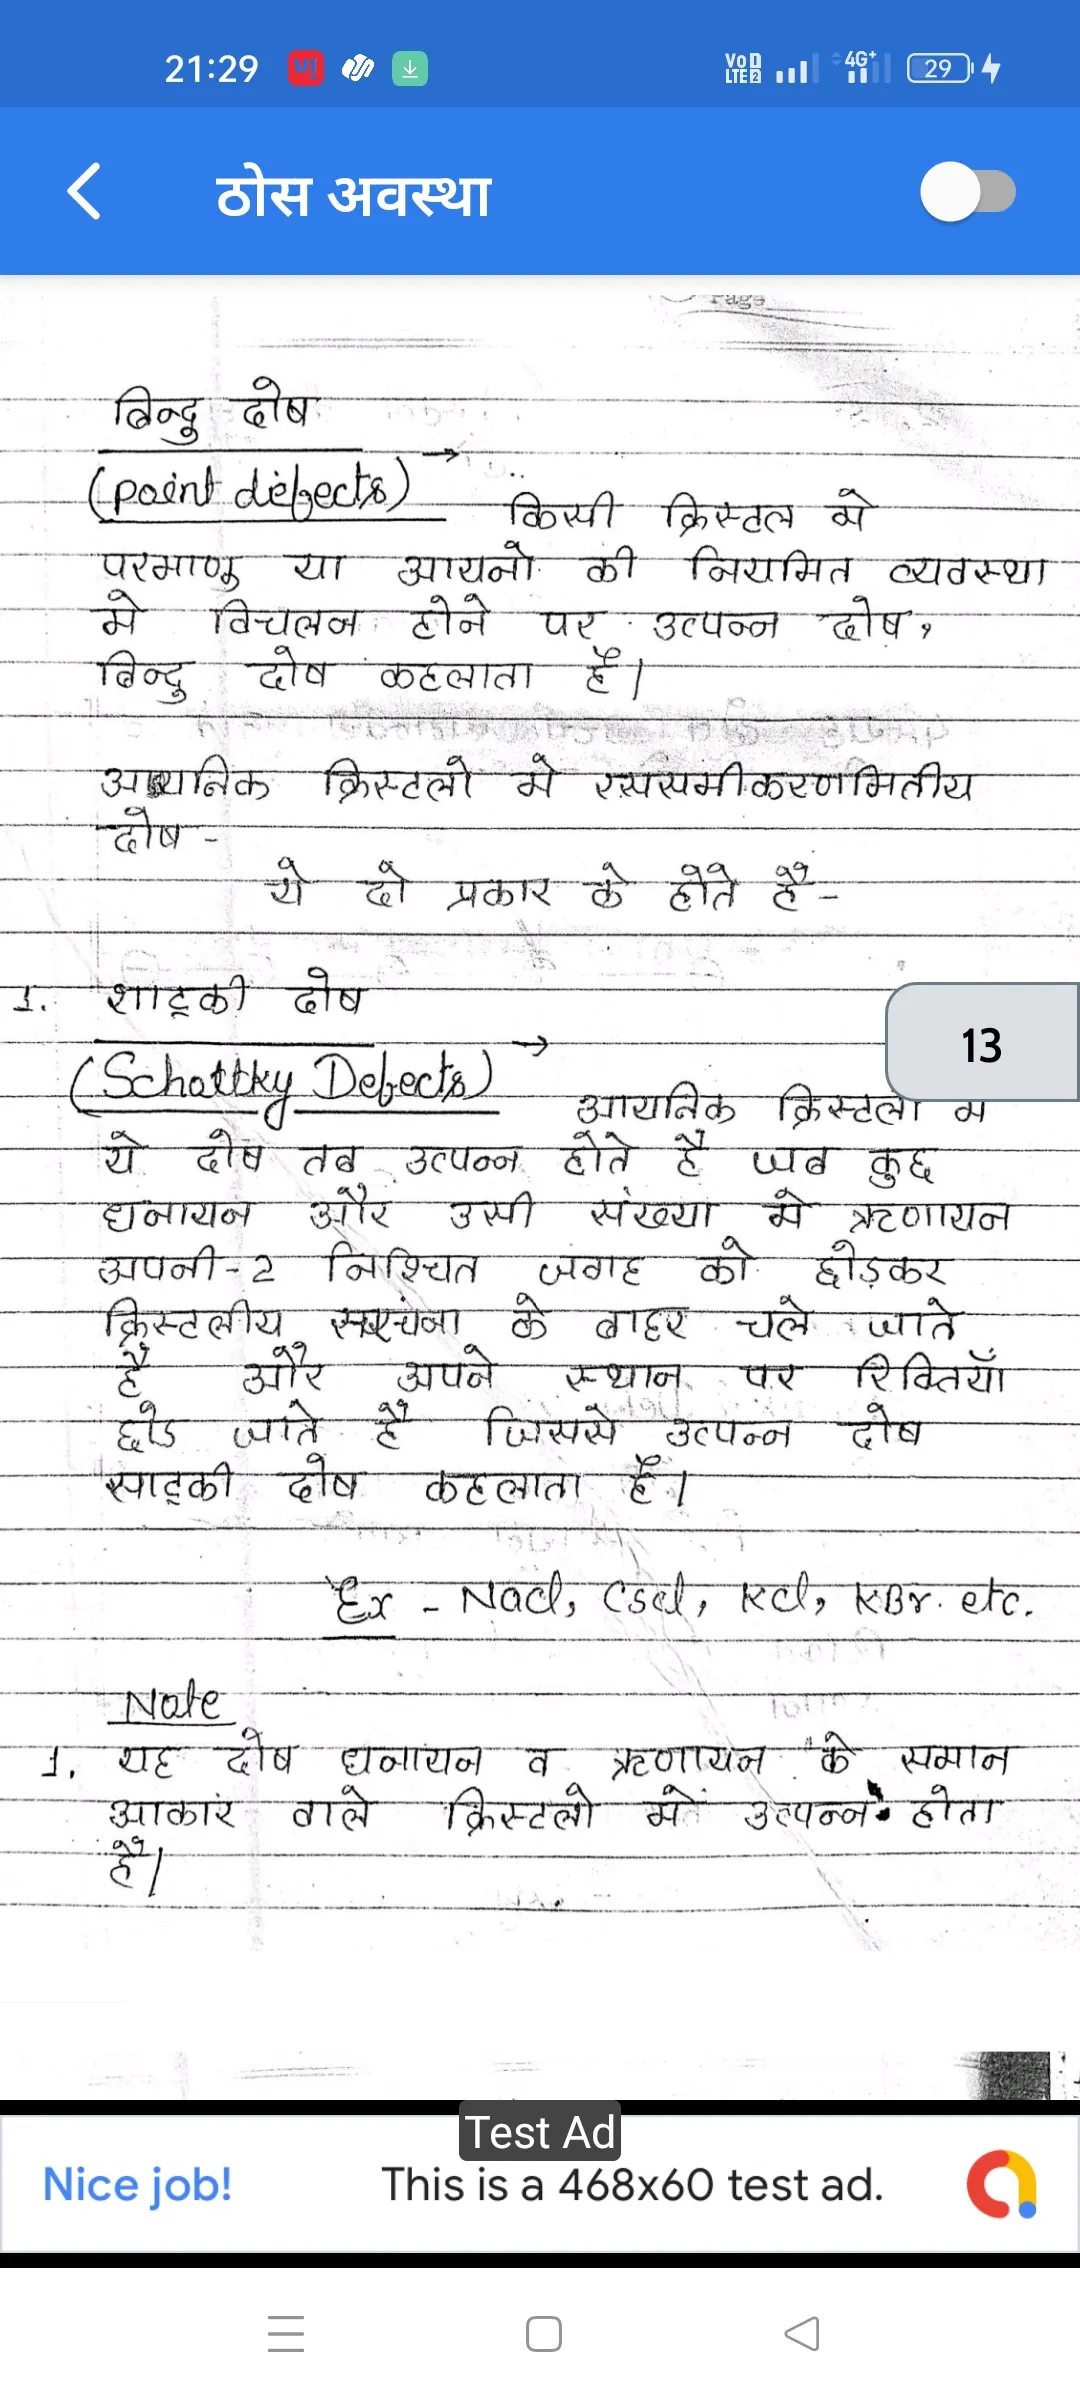 21:29
VoD LTE2 4G+ 29
ठोस अवस्था
Page
बिन्दु दोष
(point defects) →
किसी क्रिस्टल मे
परमाणु या आयनो की नियमित व्यवस्था
मे विचलन होने पर उत्पन्न दोष,
बिन्दु दोष कहलाता है।
आयनिक क्रिस्टलो मे रससमीकरणमितीय
दोष -
ये दो प्रकार के होते है -
1. शाट्की दोष
(Schottky Defects) →
13
आयनिक क्रिस्टलो मे
ये दोष तब उत्पन्न होते है जब कुछ
धनायन और उसी संख्या मे ऋणायन
अपनी-2 निश्चित जगह को छोड़कर
क्रिस्टलीय के बाहर चले जाते
है और अपने स्थान पर रिक्तियाँ
छोड जाते है जिससे उत्पन्न दोष
साट्की दोष कहलाता है।
Ex - Nacl, Cscl, Kcl, KBr. etc.
Note
1. यह दोष धनायन व ऋणायन के समान
आकार वाले क्रिस्टलो में उत्पन्न होता
है।
Test Ad
Nice job! This is a 468x60 test ad.